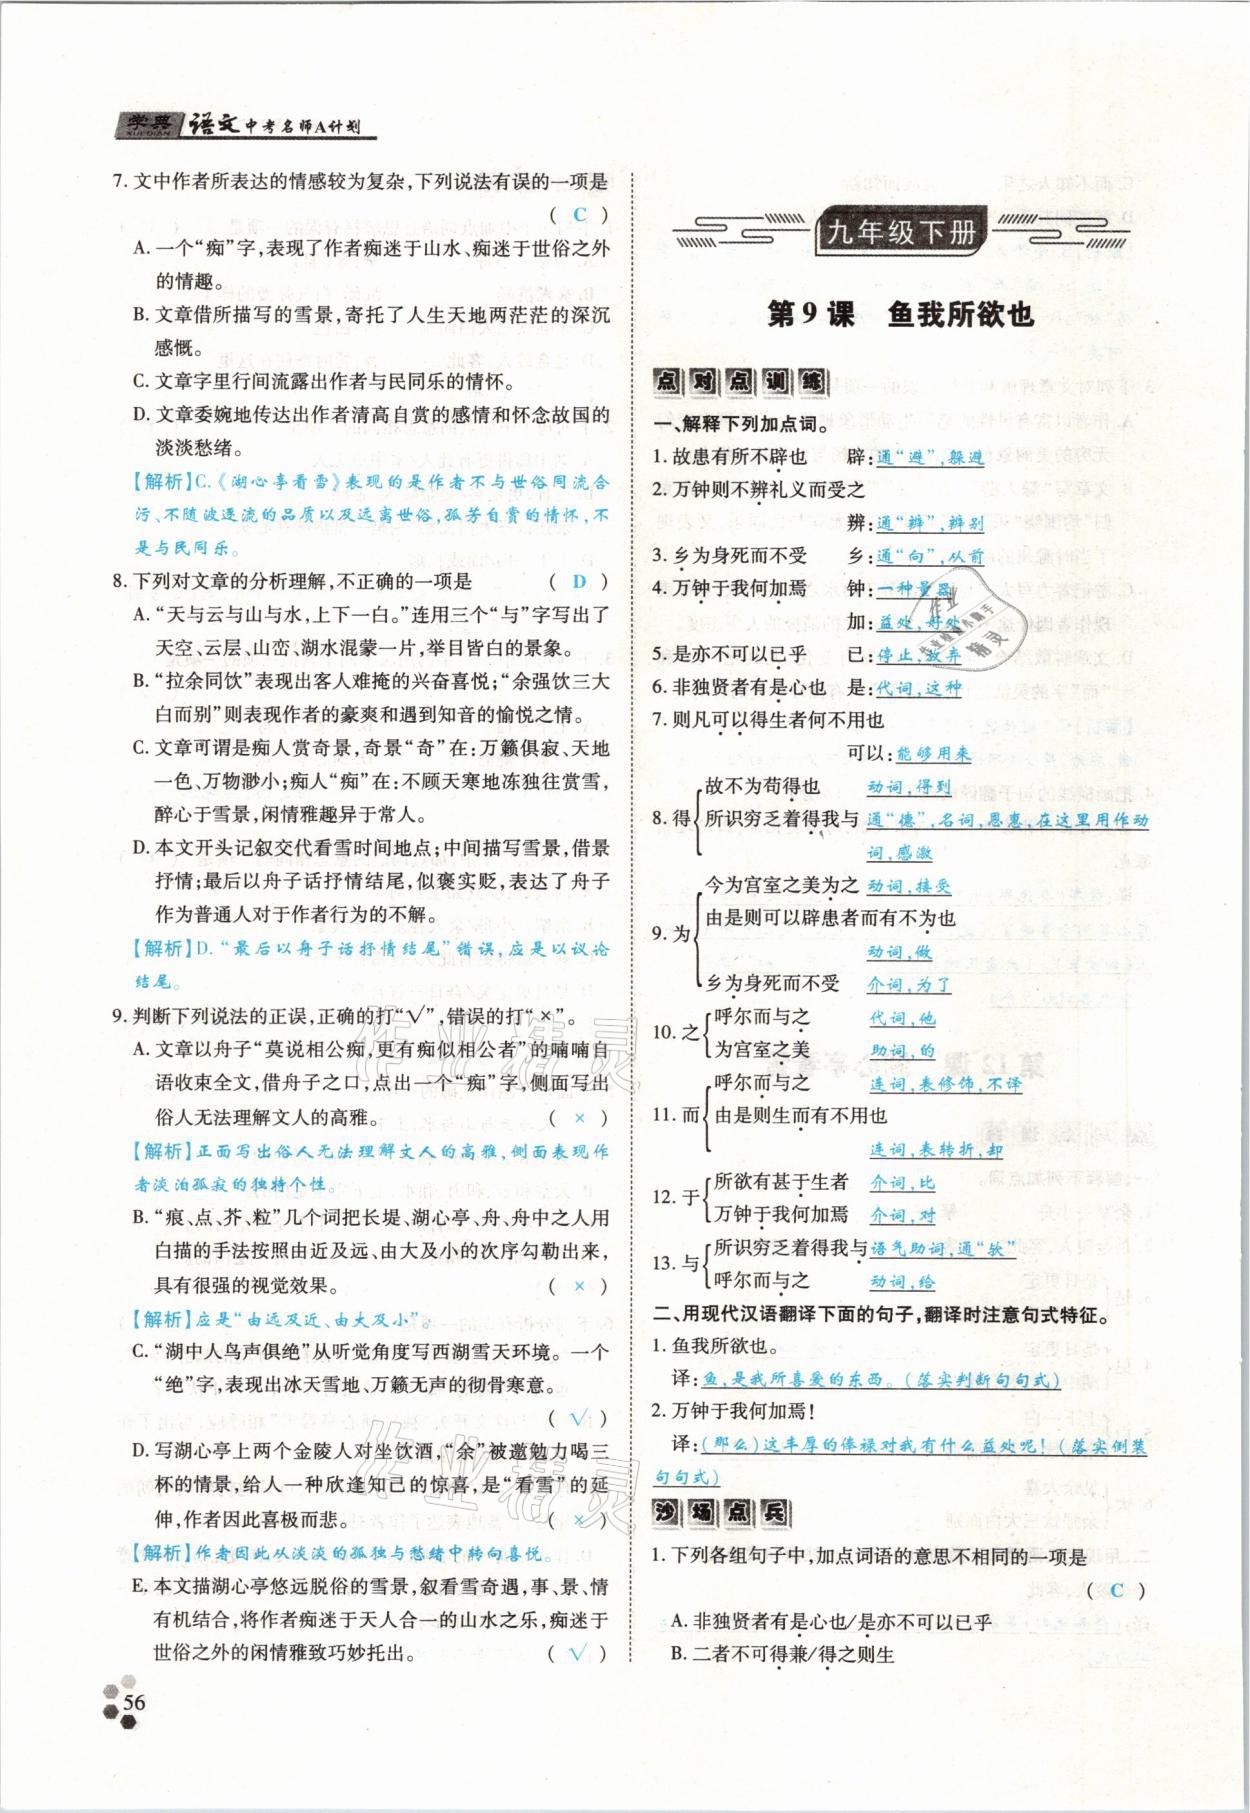 学典 语文中考名师A计划
XUEDIAN
7. 文中作者所表达的情感较为复杂,下列说法有误的一项是
( C )
A. 一个“痴”字,表现了作者痴迷于山水、痴迷于世俗之外
的情趣。
B. 文章借所描写的雪景,寄托了人生天地两茫茫的深沉
感慨。
C. 文章字里行间流露出作者与民同乐的情怀。
D. 文章委婉地传达出作者清高自赏的感情和怀念故国的
淡淡愁绪。
【解析】C.《湖心亭看雪》表现的是作者不与世俗同流合
污、不随波逐流的品质以及远离世俗,孤芳自赏的情怀,不
是与民同乐。
8. 下列对文章的分析理解,不正确的一项是 ( D )
A. “天与云与山与水,上下一白。”连用三个“与”字写出了
天空、云层、山峦、湖水混蒙一片,举目皆白的景象。
B. “拉余同饮”表现出客人难掩的兴奋喜悦;“余强饮三大
白而别”则表现作者的豪爽和遇到知音的愉悦之情。
C. 文章可谓是痴人赏奇景,奇景“奇”在:万籁俱寂、天地
一色、万物渺小;痴人“痴”在:不顾天寒地冻独往赏雪,
醉心于雪景,闲情雅趣异于常人。
D. 本文开头记叙交代看雪时间地点;中间描写雪景,借景
抒情;最后以舟子话抒情结尾,似褒实贬,表达了舟子
作为普通人对于作者行为的不解。
【解析】D. “最后以舟子话抒情结尾”错误,应是以议论
结尾。
9. 判断下列说法的正误,正确的打“√”,错误的打“×”。
A. 文章以舟子“莫说相公痴,更有痴似相公者”的喃喃自
语收束全文,借舟子之口,点出一个“痴”字,侧面写出
俗人无法理解文人的高雅。 ( × )
【解析】正面写出俗人无法理解文人的高雅,侧面表现作
者淡泊孤寂的独特个性。
B. “痕、点、芥、粒”几个词把长堤、湖心亭、舟、舟中之人用
白描的手法按照由近及远、由大及小的次序勾勒出来,
具有很强的视觉效果。 ( × )
【解析】应是“由远及近、由大及小”。
C. “湖中人鸟声俱绝”从听觉角度写西湖雪天环境。一个
“绝”字,表现出冰天雪地、万籁无声的彻骨寒意。
( √ )
D. 写湖心亭上两个金陵人对坐饮酒,“余”被邀勉力喝三
杯的情景,给人一种欣逢知己的惊喜,是“看雪”的延
伸,作者因此喜极而悲。 ( × )
【解析】作者因此从淡淡的孤独与愁绪中转向喜悦。
E. 本文描湖心亭悠远脱俗的雪景,叙看雪奇遇,事、景、情
有机结合,将作者痴迷于天人合一的山水之乐,痴迷于
世俗之外的闲情雅致巧妙托出。 ( √ )
56
九年级下册
第9课 鱼我所欲也
点对点训练
一、解释下列加点词。
1. 故患有所不辟也 辟:通“避”,躲避
2. 万钟则不辨礼义而受之
辨:通“辨”,辨别
3. 乡为身死而不受 乡:通“向”,从前
4. 万钟于我何加焉 钟:一种量器
加:益处,好处
5. 是亦不可以已乎 已:停止,放弃
6. 非独贤者有是心也 是:代词,这种
7. 则凡可以得生者何不用也
可以:能够用来
8. 得 故不为苟得也 动词,得到
所识穷乏着得我与 通“德”,名词,恩惠,在这里用作动
词,感激
9. 为 今为宫室之美为之 动词,接受
由是则可以辟患者而有不为也
动词,做
乡为身死而不受 介词,为了
10. 之 呼尔而与之 代词,他
为宫室之美 助词,的
11. 而 呼尔而与之 连词,表修饰,不译
由是则生而有不用也
连词,表转折,却
12. 于 所欲有甚于生者 介词,比
万钟于我何加焉 介词,对
13. 与 所识穷乏着得我与 语气助词,通“欤”
呼尔而与之 动词,给
二、用现代汉语翻译下面的句子,翻译时注意句式特征。
1. 鱼我所欲也。
译:鱼,是我所喜爱的东西。(落实判断句句式)
2. 万钟于我何加焉!
译:(那么)这丰厚的俸禄对我有什么益处呢!(落实倒装
句句式)
沙场点兵
1. 下列各组句子中,加点词语的意思不相同的一项是
( C )
A. 非独贤者有是心也/是亦不可以已乎
B. 二者不可得兼/得之则生
作业精灵
作业精灵